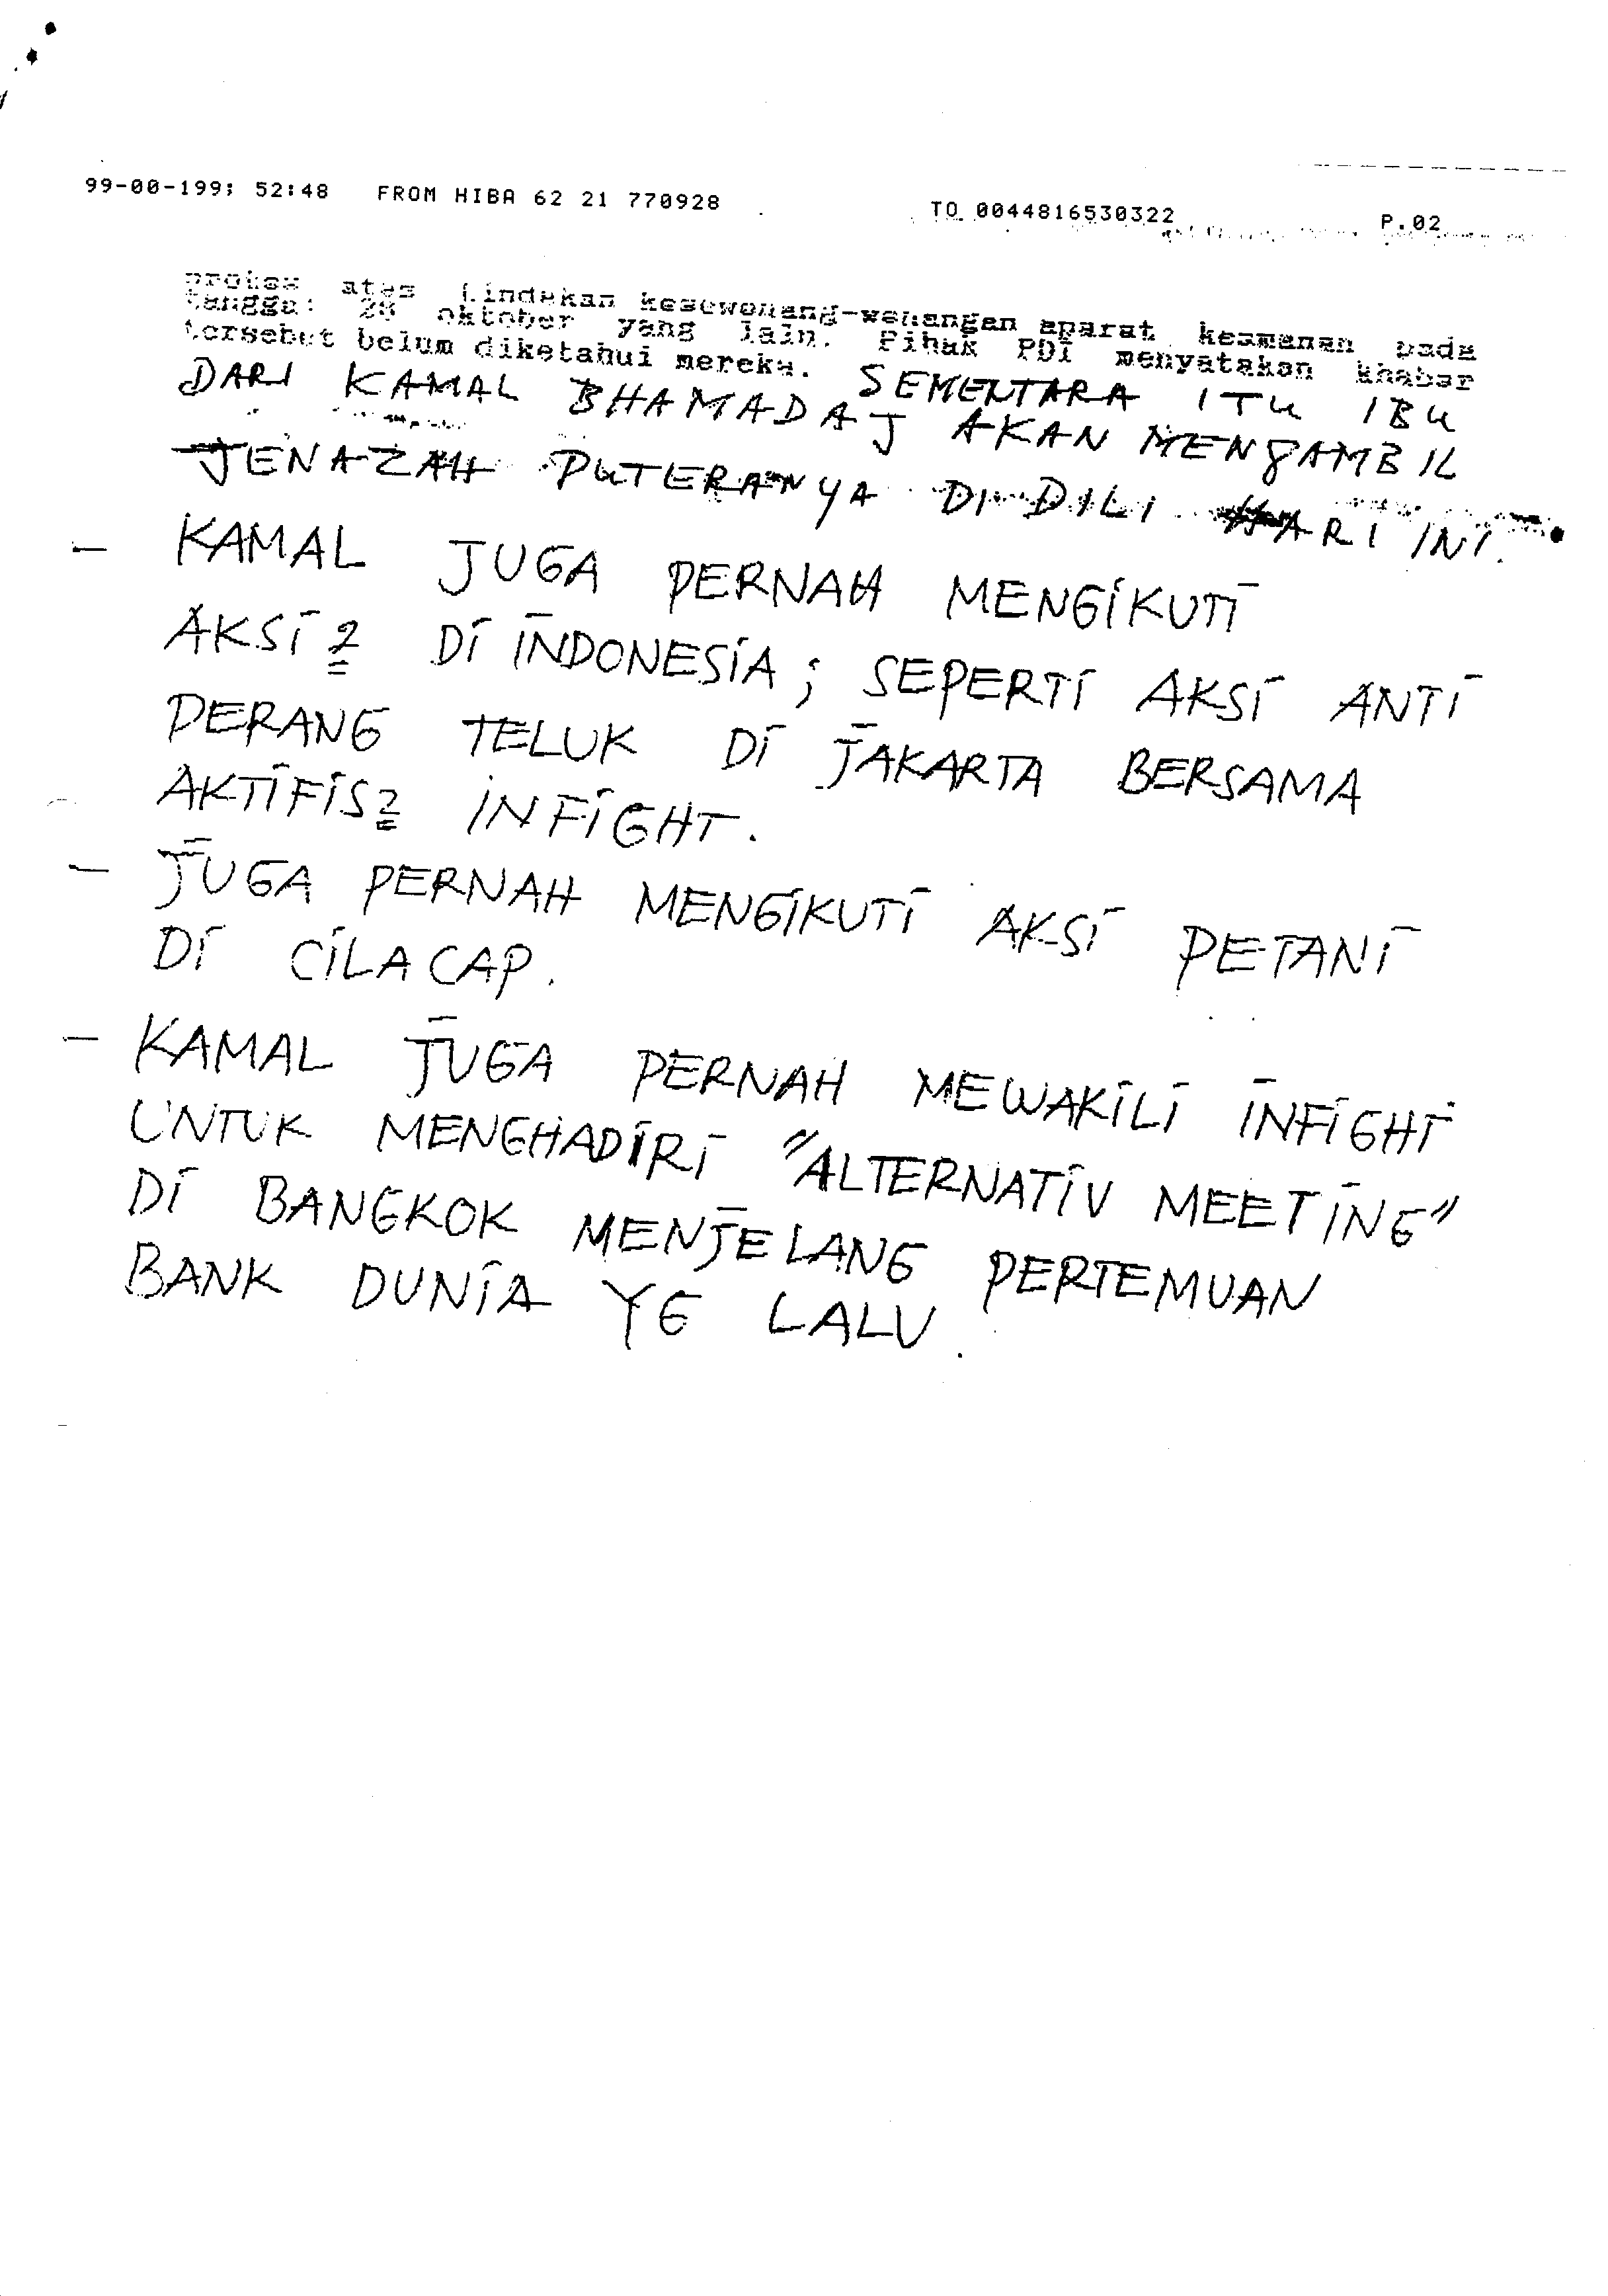 99-00-199; 52:48 FROM HIBA 62 21 770928 TO 0044816530322 P.02
protes atas tindakan kesewenang-wenangan aparat keamanan pada
tanggal 28 oktober yang lain. Pihak PDI menyatakan khabar
tersebut belum diketahui mereka. SEMENTARA ITU IBU
DARI KAMAL BHAMADAJ AKAN MENGAMBIL
JENAZAH PUTERANYA DI DILI HARI INI.
- KAMAL JUGA PERNAH MENGIKUTI
AKSI2 DI INDONESIA; SEPERTI AKSI ANTI
PERANG TELUK DI JAKARTA BERSAMA
AKTIFIS2 INFIGHT.
- JUGA PERNAH MENGIKUTI AKSI PETANI
DI CILACAP.
- KAMAL JUGA PERNAH MEWAKILI INFIGHT
UNTUK MENGHADIRI "ALTERNATIV MEETING"
DI BANGKOK MENJELANG PERTEMUAN
BANK DUNIA YG LALU.